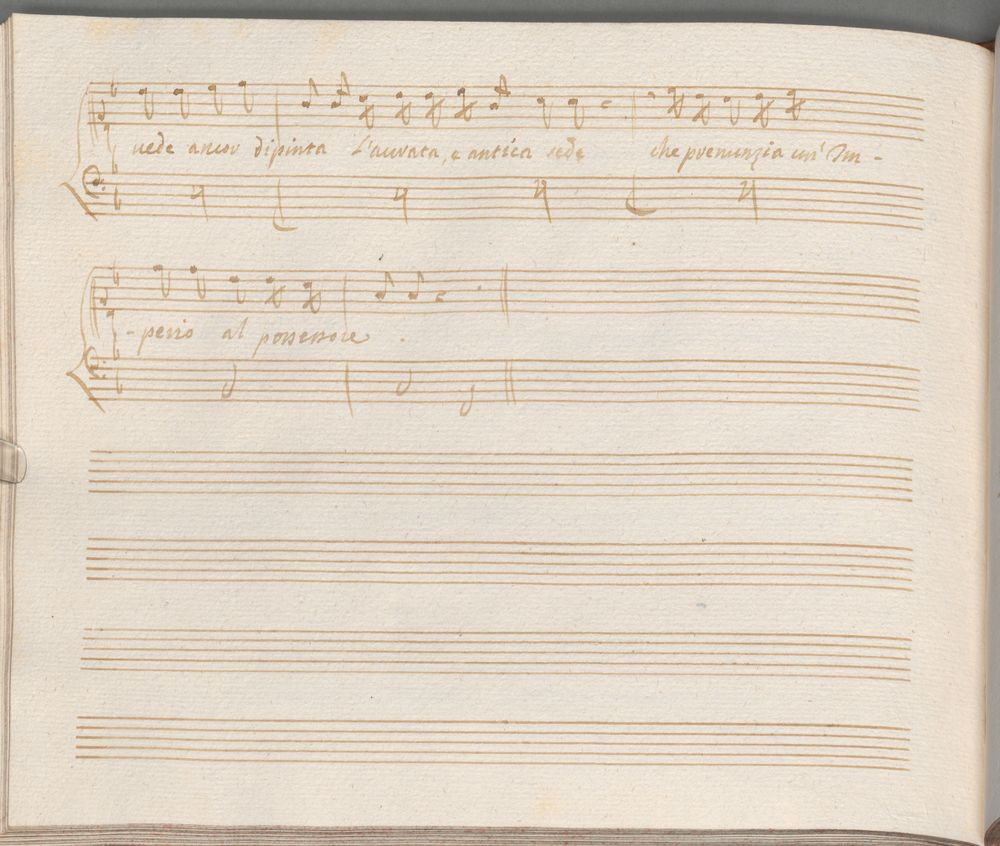 vede ancor dipinta L'aurata, e antica sede che prenunzia un' Im -
- perio al possessore .